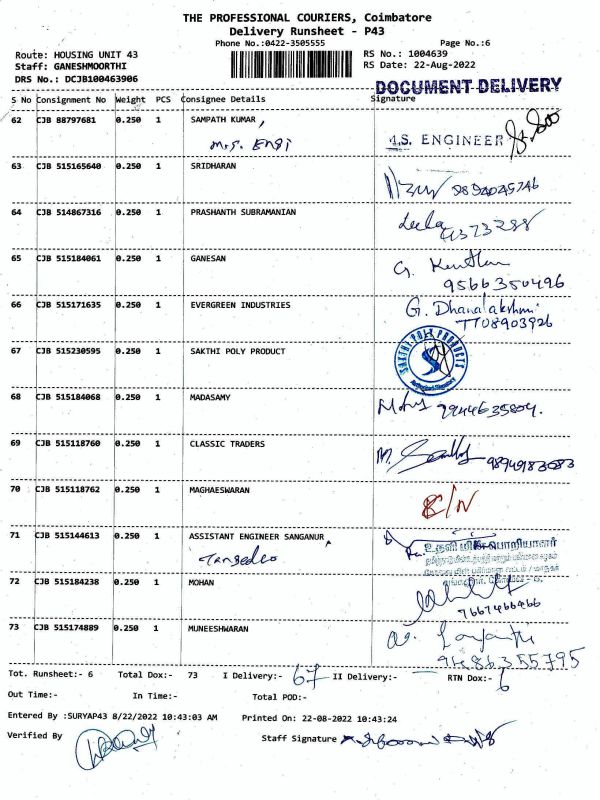 THE PROFESSIONAL COURIERS, Coimbatore
Delivery Runsheet - P43
Phone No.:0422-3505555 Page No.:6
Route: HOUSING UNIT 43 RS No.: 1004639
Staff: GANESHMOORTHI RS Date: 22-Aug-2022
DRS No.: DCJB100463906
DOCUMENT DELIVERY
S No Consignment No Weight PCS Consignee Details Signature
62 CJB 88797681 0.250 1 SAMPATH KUMAR,
M.S. Engi M.S. ENGINEER
63 CJB 515165640 0.250 1 SRIDHARAN
9894045746
64 CJB 514867316 0.250 1 PRASHANTH SUBRAMANIAN
Leela
65 CJB 515184061 0.250 1 GANESAN
G.
9566350496
66 CJB 515171635 0.250 1 EVERGREEN INDUSTRIES G. Dhanalakshmi
7708903926
67 CJB 515230595 0.250 1 SAKTHI POLY PRODUCT
SAKTHI POLY PRODUCTS
Authorised Signatory
68 CJB 515184068 0.250 1 MADASAMY
9944635804.
69 CJB 515118760 0.250 1 CLASSIC TRADERS
M. 9894983083
70 CJB 515118762 0.250 1 MAGHAESWARAN
C/N
71 CJB 515144613 0.250 1 ASSISTANT ENGINEER SANGANUR,
Tangedco
உதவி மின் பொறியாளர்
72 CJB 515184238 0.250 1 MOHAN
7667466466
73 CJB 515174889 0.250 1 MUNEESHWARAN
9486355795
Tot. Runsheet:- 6 Total Dox:- 73 I Delivery:- 67 II Delivery:- RTN Dox:- 6
Out Time:- In Time:- Total POD:-
Entered By :SURYAP43 8/22/2022 10:43:03 AM Printed On: 22-08-2022 10:43:24
Verified By Staff Signature